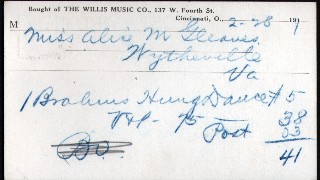 Bought of THE WILLIS MUSIC CO., 137 W. Fourth St.
Cincinnati, O., 2-28 191 1
M Miss Alice M Gleaves
Wytheville
Va
1 Brahms Hung Dance # 5
V+P - 75 38
Post 03
41